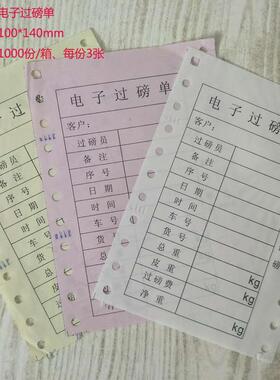 电子过磅单
100*140mm
1000份/箱、每份3张
过磅
客户:
过磅员
备注
序号
日期
时间
车号
货号
总重
皮重
过磅费
净重
电子过磅单
客户:
过磅员
备注
序号
日期
时间
车号
货号
总重
皮重
过磅费
净重
电子过磅单
客户:
过磅员
备注
序号
日期
时间
车号
货号
总重
kg
皮重
过磅费
kg
净重
kg